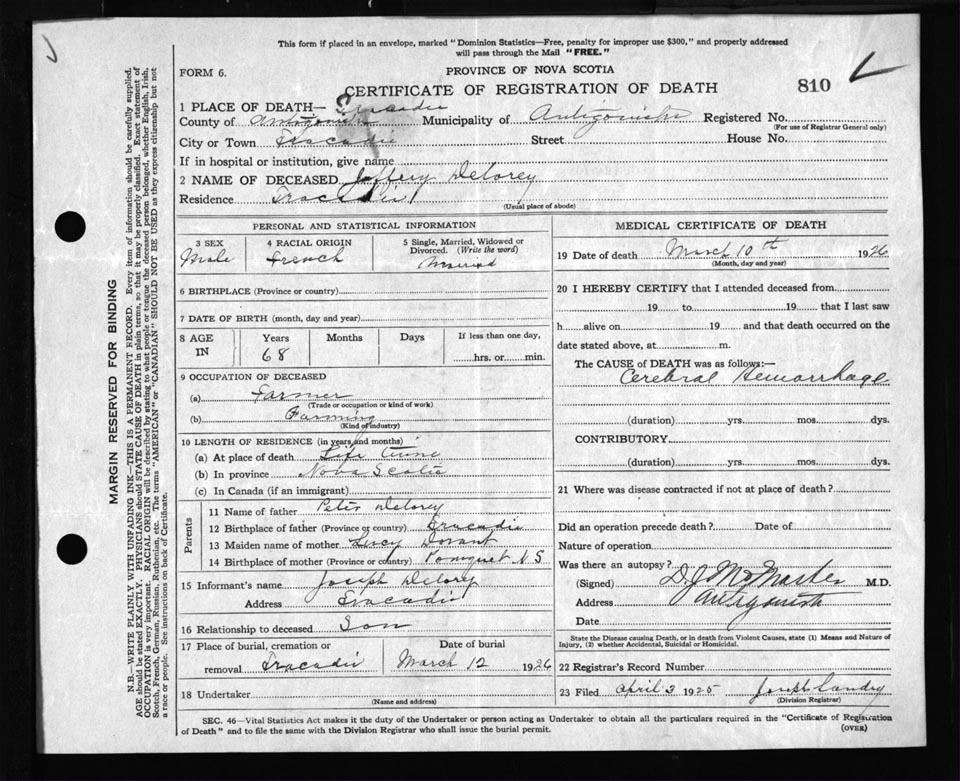 This form if placed in an envelope, marked "Dominion Statistics—Free, penalty for improper use $300," and properly addressed
will pass through the Mail "FREE."
FORM 6.
PROVINCE OF NOVA SCOTIA
CERTIFICATE OF REGISTRATION OF DEATH
810
1 PLACE OF DEATH— Tracadie
County of Antigonish Municipality of Antigonish Registered No.
(For use of Registrar General only)
City or Town Tracadie Street House No.
If in hospital or institution, give name
2 NAME OF DECEASED Joffery Delorey
Residence Tracadie
(Usual place of abode)
PERSONAL AND STATISTICAL INFORMATION
3 SEX Male
4 RACIAL ORIGIN French
5 Single, Married, Widowed or Divorced. (Write the word) Married
6 BIRTHPLACE (Province or country)
7 DATE OF BIRTH (month, day and year)
8 AGE IN Years 68 Months Days If less than one day, hrs. or min.
9 OCCUPATION OF DECEASED
(a) Farmer
(Trade or occupation or kind of work)
(b) Farming
(Kind of industry)
10 LENGTH OF RESIDENCE (in years and months)
(a) At place of death Life time
(b) In province Nova Scotia
(c) In Canada (if an immigrant)
Parents
11 Name of father Peter Delorey
12 Birthplace of father (Province or country) Tracadie
13 Maiden name of mother Lucy Dorant
14 Birthplace of mother (Province or country) Pomquet N S
15 Informant's name Joseph Delorey
Address Tracadie
16 Relationship to deceased Son
17 Place of burial, cremation or removal Tracadie
Date of burial March 12 1926
18 Undertaker
(Name and address)
MEDICAL CERTIFICATE OF DEATH
19 Date of death March 10th 1926
(Month, day and year)
20 I HEREBY CERTIFY that I attended deceased from
19 to 19 that I last saw
h alive on 19 and that death occurred on the
date stated above, at m.
The CAUSE of DEATH was as follows:—
Cerebral Hemorrhage
(duration) yrs. mos. dys.
CONTRIBUTORY
(duration) yrs. mos. dys.
21 Where was disease contracted if not at place of death?
Did an operation precede death? Date of
Nature of operation
Was there an autopsy?
(Signed) D J McMaster M.D.
Address Antigonish
Date
State the Disease causing Death, or in death from Violent Causes, state (1) Means and Nature of
Injury, (2) whether Accidental, Suicidal or Homicidal.
22 Registrar's Record Number
23 Filed April 3 1925 Joseph Landry
(Division Registrar)
SEC. 46—Vital Statistics Act makes it the duty of the Undertaker or person acting as Undertaker to obtain all the particulars required in the "Certificate of Registration
of Death" and to file the same with the Division Registrar who shall issue the burial permit.
(OVER)
MARGIN RESERVED FOR BINDING
N.B.—WRITE PLAINLY WITH UNFADING INK—THIS IS A PERMANENT RECORD. Every item of information should be carefully supplied.
AGE should be stated EXACTLY. PHYSICIANS should STATE CAUSE OF DEATH in plain terms, so that it may be properly classified. Exact statement of
OCCUPATION is very important. RACIAL ORIGIN will be described by stating to what people or tongue the deceased person belonged, whether English, Irish,
Scotch, French, German, Russian, Ruthenian, etc. The terms "AMERICAN" or "CANADIAN" SHOULD NOT BE USED as they express citizenship but not
a race or people. See instructions on back of Certificate.